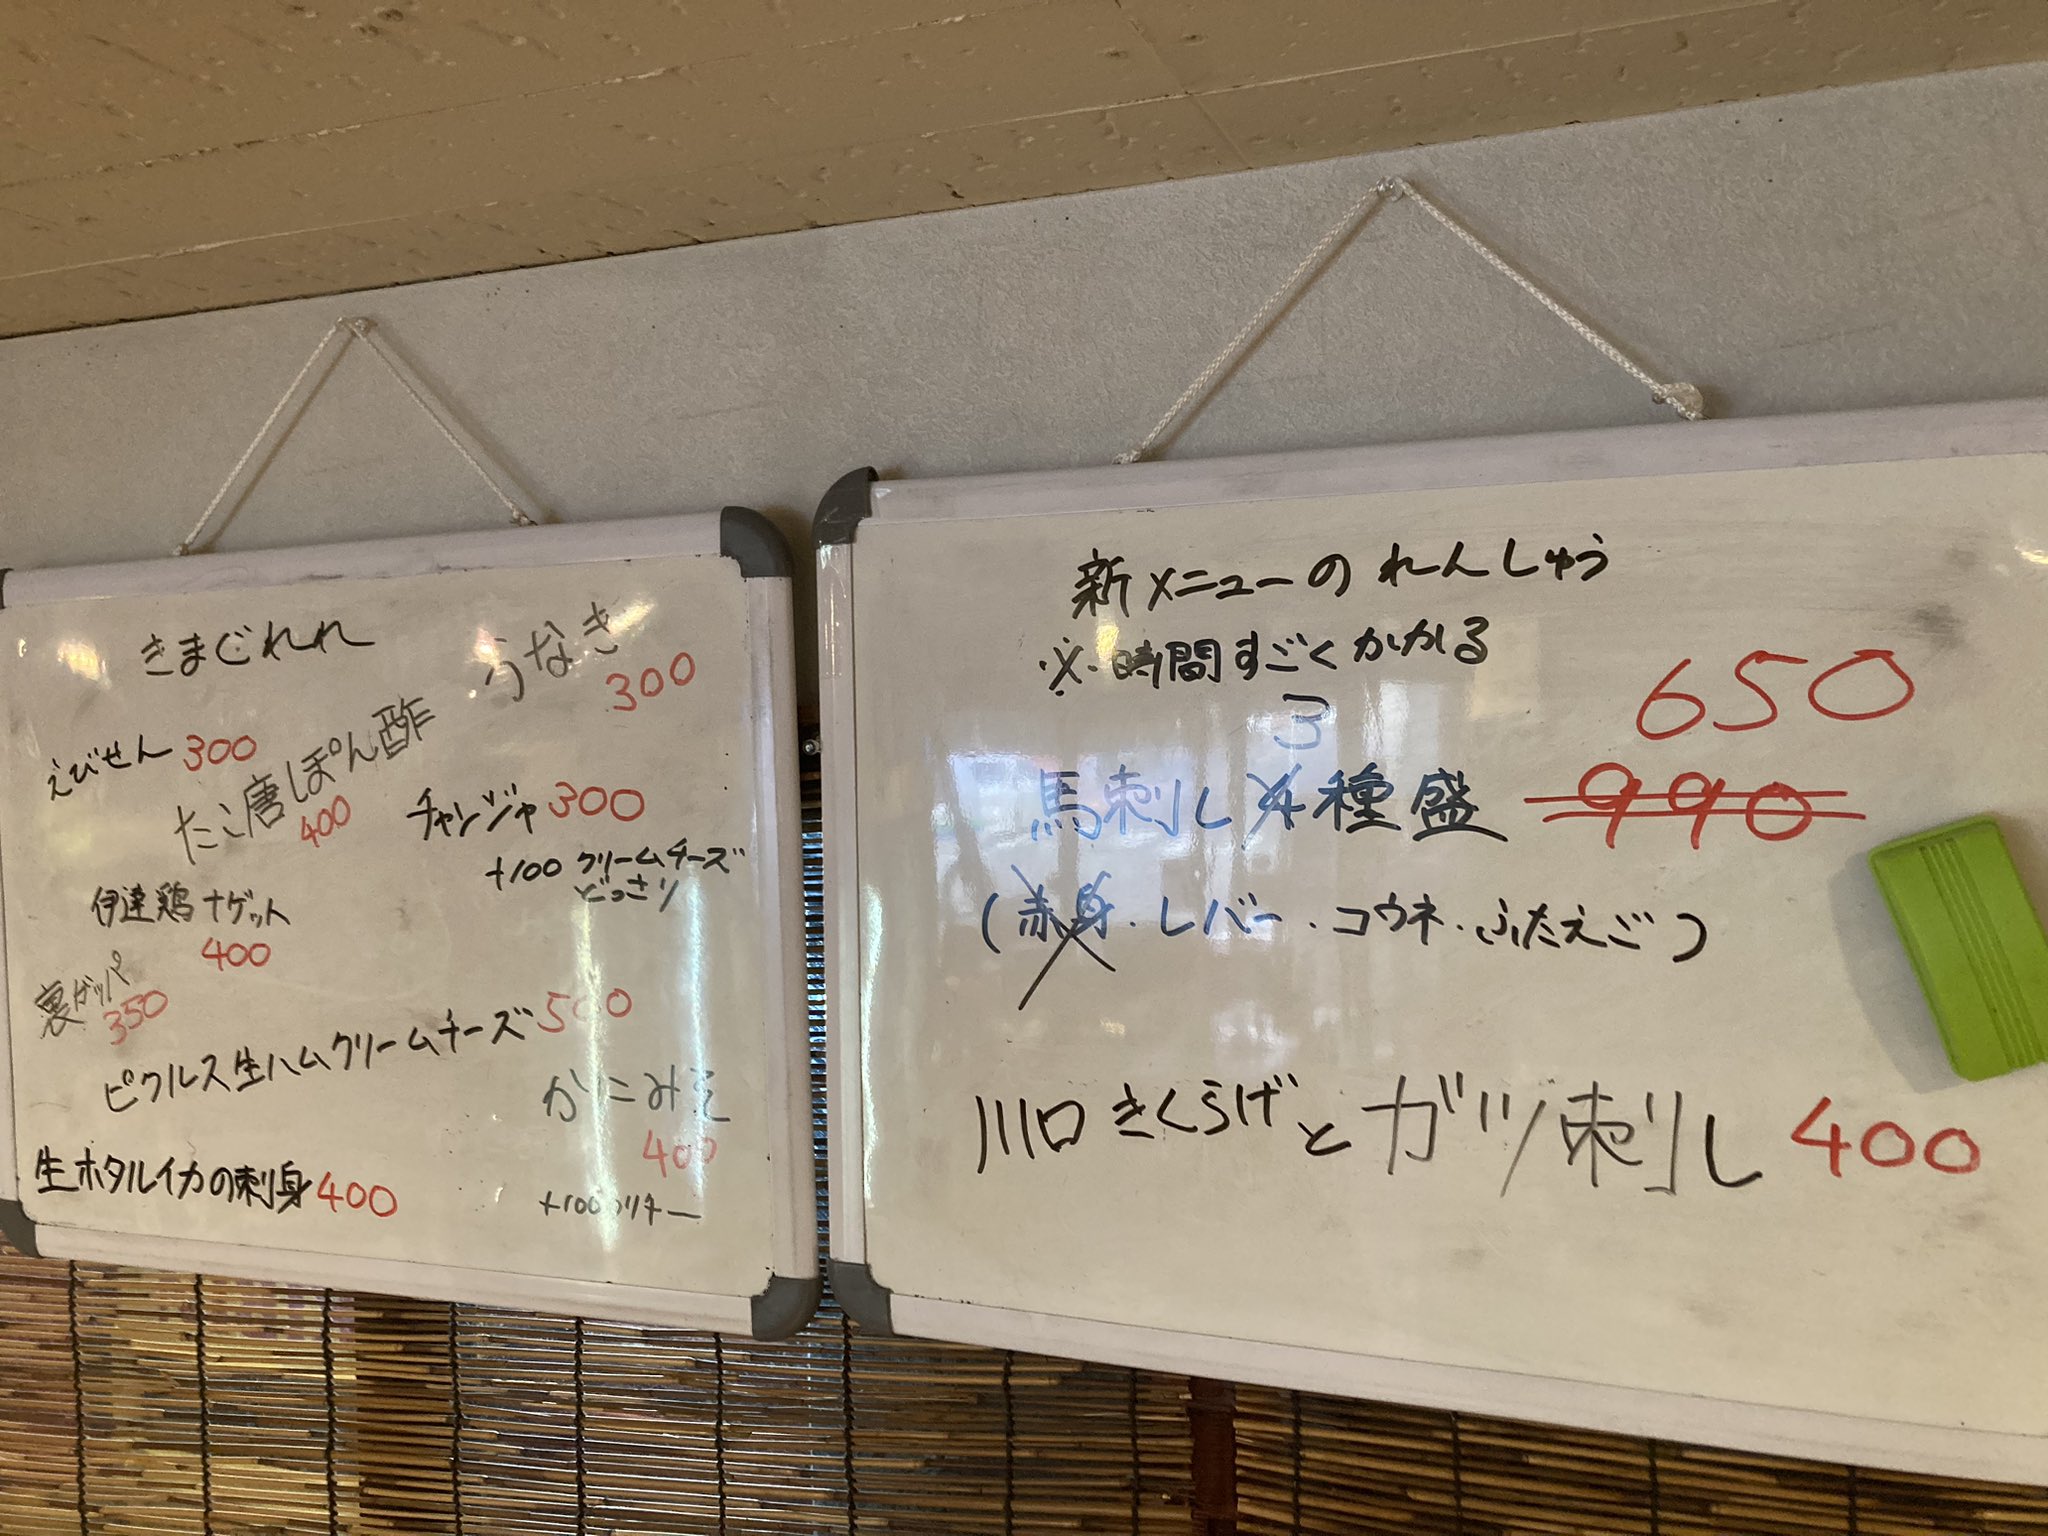 きまぐれれ
うなき
300
えびせん 300
たこ唐ぽん酢
400
チャンジャ 300
+100 クリームチーズ
どっさり
伊達鶏ナゲット
400
裏ガッパ
350
ピクルス生ハムクリームチーズ 500
かにみそ
400
+100クリチー
生ホタルイカの刺身 400
新メニューの れんしゅう
※時間すごくかかる
650
3
馬刺し4種盛 990
(赤身・レバー・コウネ・ふたえご)
川口きくらげとガツ刺し 400